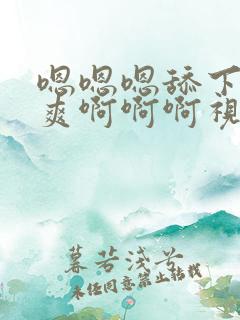 嗯嗯嗯舔下
爽啊啊啊視
暮若浅兮
未经同意禁止转载